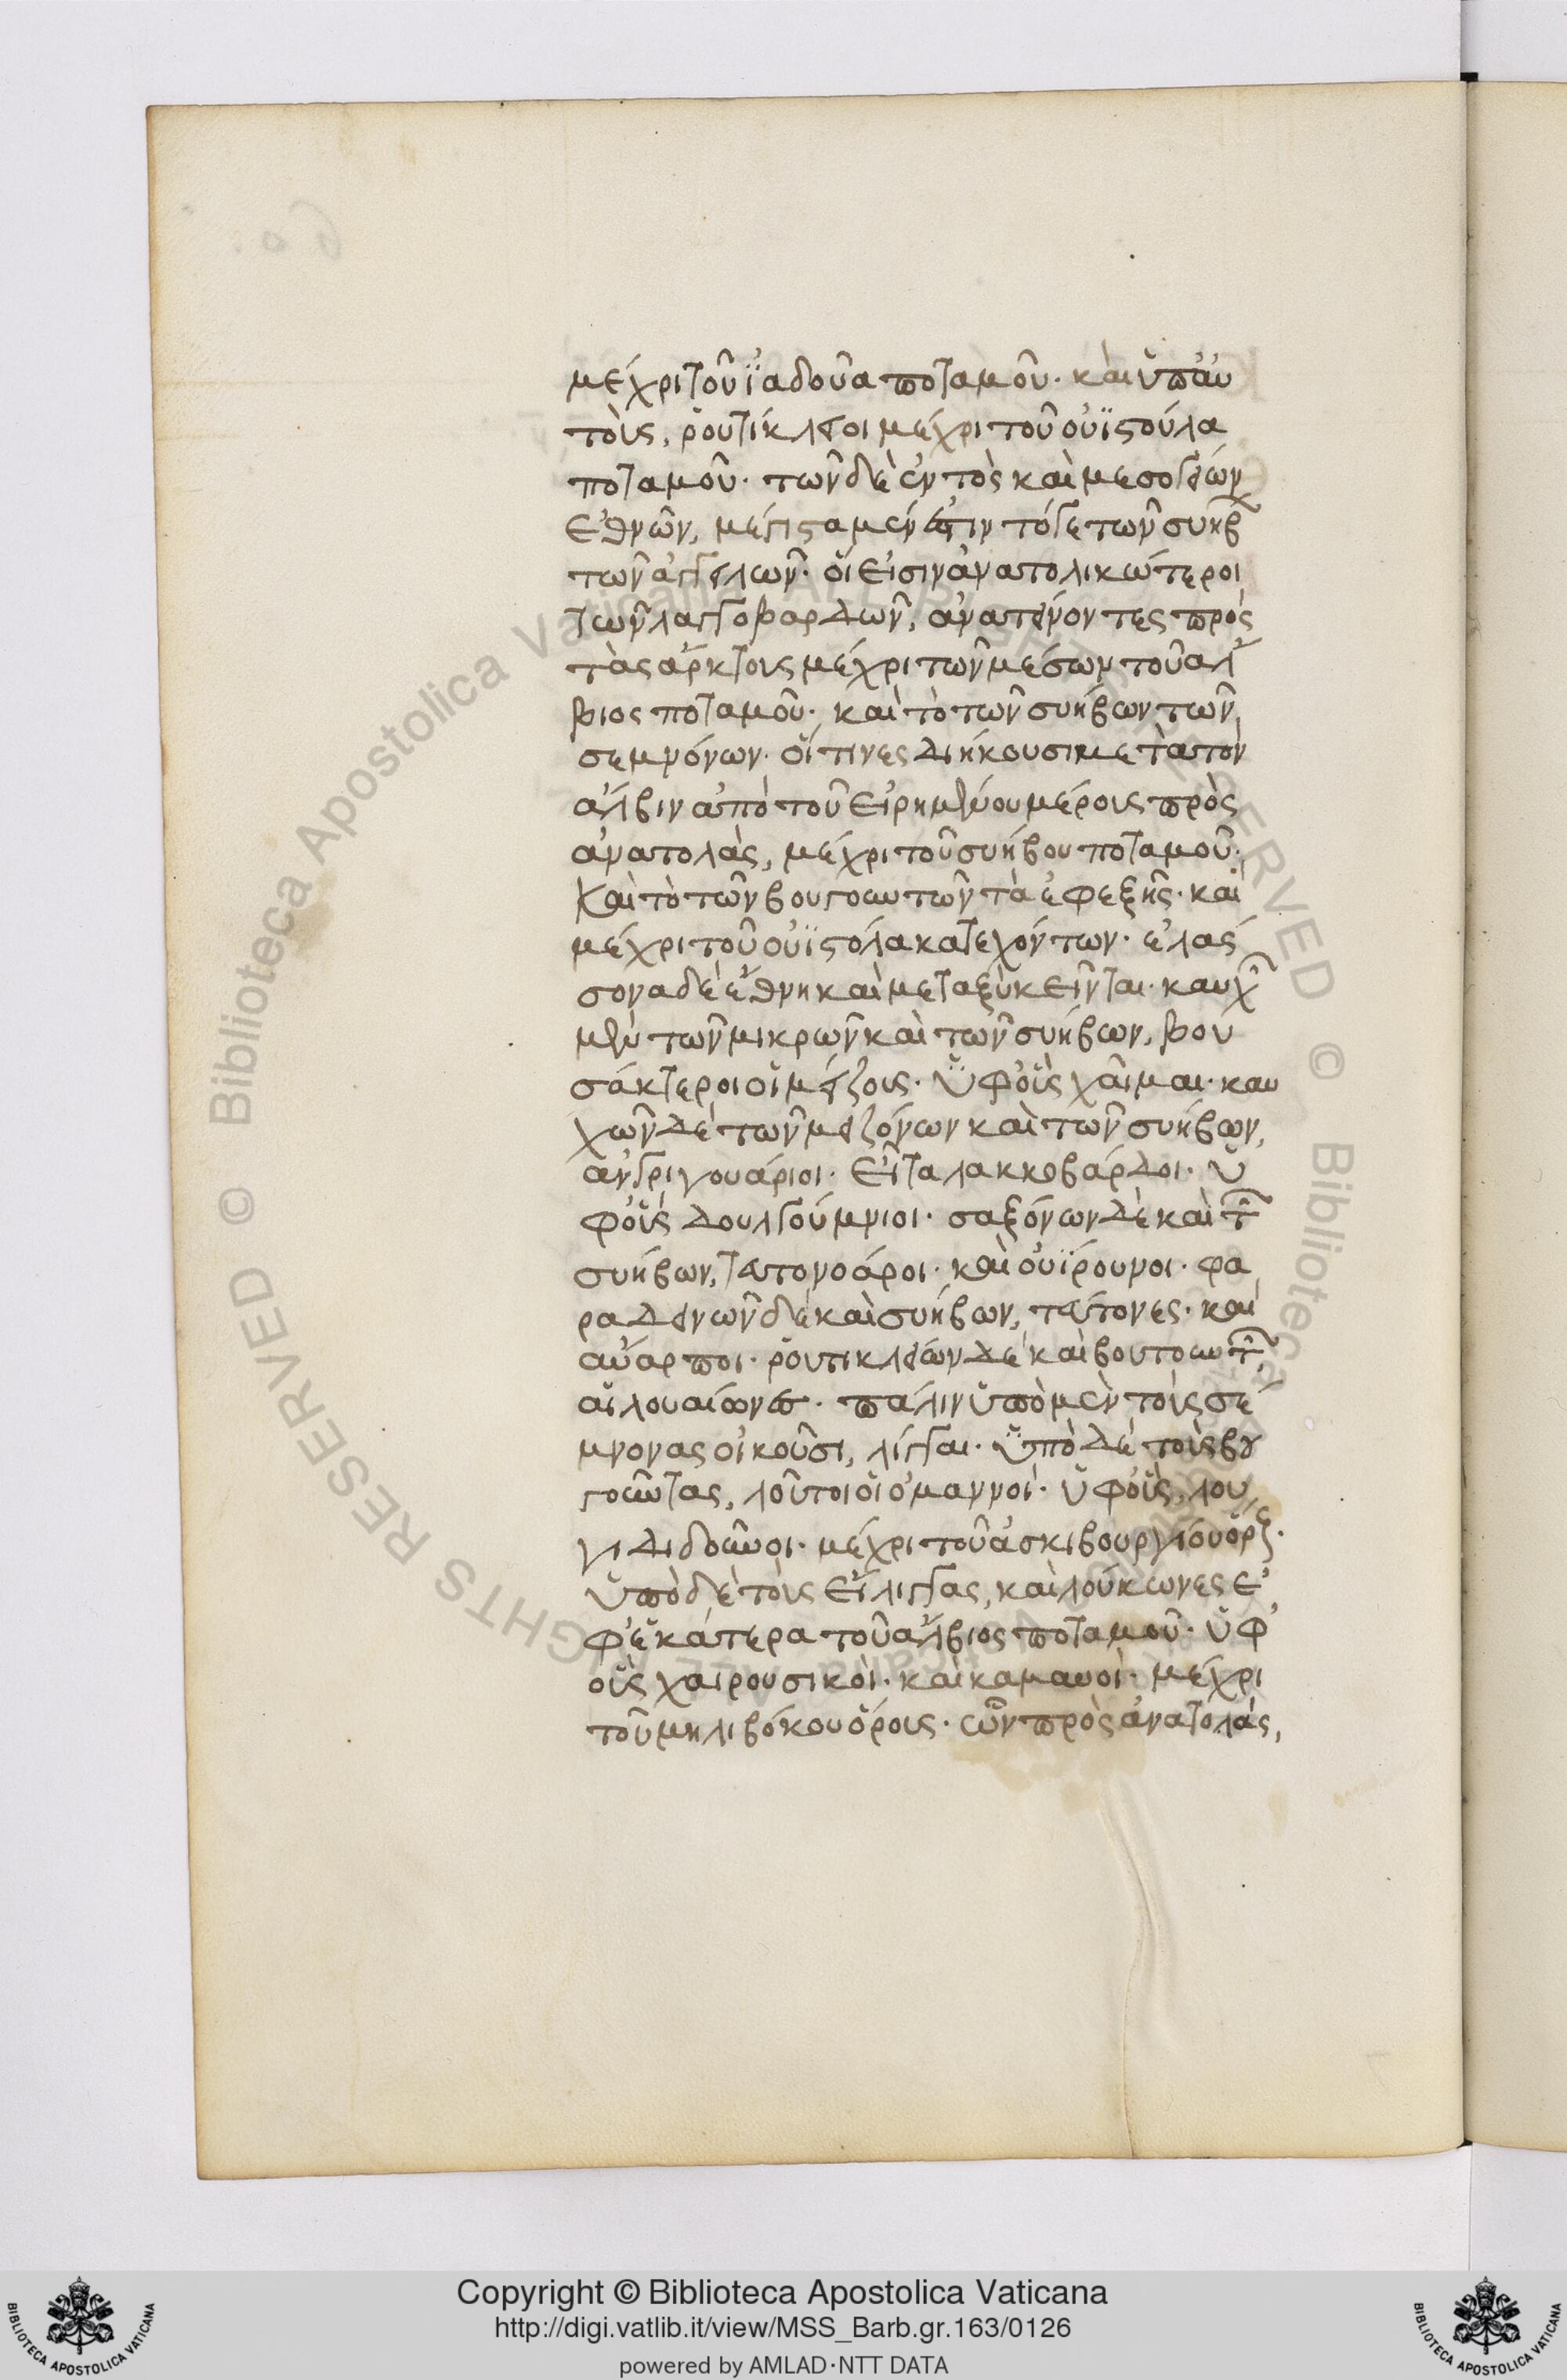 μέχρι τοῦ ϊαδούα ποταμοῦ· καὶ ὑπ᾽ αὐ
τοὺς, ῥουτίκλειοι μέχρι τοῦ οὐϊστούλα
ποταμοῦ· τῶν δὲ ἐντὸς καὶ μεσογείων
ἐθνῶν, μέγιστα μέν ἐστιν τό τε τῶν συήβ
τῶν ἀγγειλῶν· οἵ εἰσιν ἀνατολικώτεροι
τῶν λαγγοβαρδῶν, ἀνατείνοντες πρὸς
τὰς ἄρκτους μέχρι τῶν μέσων τοῦ ἄλ
βιος ποταμοῦ· καὶ τὸ τῶν συήβων τῶν
σεμνόνων· οἵτινες διήκουσι μετὰ τὸν
ἄλβιν ἀπὸ τοῦ εἰρημένου μέρους πρὸς
ἀνατολὰς, μέχρι τοῦ συήβου ποταμοῦ·
Καὶ τὸ τῶν βουγοωτῶν τὰ ἐφεξῆς· καὶ
μέχρι τοῦ οὐϊστόλα κατεχόντων· ἐλάσ
σονα δὲ ἔθνη καὶ μεταξὺ κεῖνται· καυχ
μὲν τῶν μικρῶν καὶ τῶν συήβων, βου
σάκτεροι οἱ μείζους· ὑφ᾽ οὓς χαῖμαι· καυ
χῶν δὲ τῶν μειζόνων καὶ τῶν συήβων,
ἀνγριγουάριοι· εἶτα λακκοβάρδοι· ὑ
φ᾽ οὓς δουλγούμνιοι· σαξόνων δὲ καὶ τ
συήβων, τευτονοάροι· καὶ οὐΐρουνοι· φα
ραδεινῶν δὲ καὶ συήβων, τεύτονες· καὶ
αὔαρποι· ῥουτικλείων δὲ καὶ βουτοωτ
αἱλουαίωνες· πάλιν ὑπὸ μὲν τοὺς σέ
μνονας οἰκοῦσι, λίγγαι· ὑπὸ δὲ τοὺς βου
γοῶτας, λοῦτοι οἱ ὀμαννοὶ· ὑφ᾽ οὓς, λου
γιδιδοῦνοι· μέχρι τοῦ ἀσκιβουργίου ὄρ·
ὑπὸ δὲ τοὺς εἴλιγγας, καὶ λούκωνες ἐ
φ᾽ ἑκάτερα τοῦ ἄλβιος ποταμοῦ· ὑφ᾽
οὓς χαιρουσικοὶ· καὶ καμαυοὶ· μέχρι
τοῦ μηλιβόκου ὄρους· ὧν πρὸς ἀνατολὰς,
Copyright © Biblioteca Apostolica Vaticana
http://digi.vatlib.it/view/MSS_Barb.gr.163/0126
powered by AMLAD·NTT DATA
BIBLIOTECA APOSTOLICA VATICANA
BIBLIOTECA APOSTOLICA VATICANA